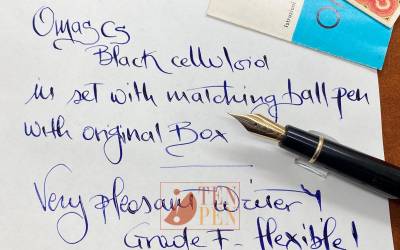 Omas Cs
Black celluloid
in set with matching ball pen
with original Box
Very pleasant writer
Grade F - flexible!
TEN
PEN